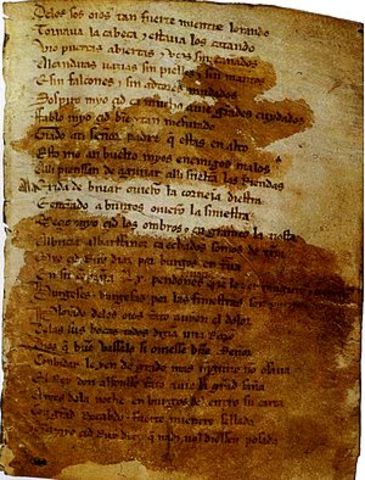 Delos sos oios tan fuerte mientre lorando
Tornaua la cabeça & estaua los catando
Vio puertas abiertas & vços sin cañados
Alcandaras uazias sin pielles & sin mantos
E sin falcones & sin adtores mudados
Sospiro myo çid ca mucho auie grãdes cuydados
Fablo myo çid bien & tan mesurado
Grado ati señor padre q̃ estas en alto
Esto me an buelto myos enemigos malos
Alli pienssan de aguiiar alli sueltã las Riendas
Ala exida de biuar ouierõ la corneia diestra
E entrãdo a burgos ouierõ la siniestra
Meçio myo çid los ombros & en grameo la tiesta
Albricia albarffanez ca echados somos de tierra
Myo çid Ruy diaz por burgos en traua
En su cõpaña Lx pendones
Burgeses & burgesas por las finiestras son
Plorando delos oios tãto auyen el dolor
Delas sus bocas todos dizian una Razõ
Dios q̃ buẽ vassalo si ouiesse buẽ Señor
Conbidar le yen de grado mas ninguno no osaua
El Rey don alfonsso tãto auie la grãd saña
Antes dela noche en burgos del entro su carta
Con grãd Recabdo & fuerte mientre sellada
Que a myo çid Ruy diaz q̃ nadi nol diessen posada